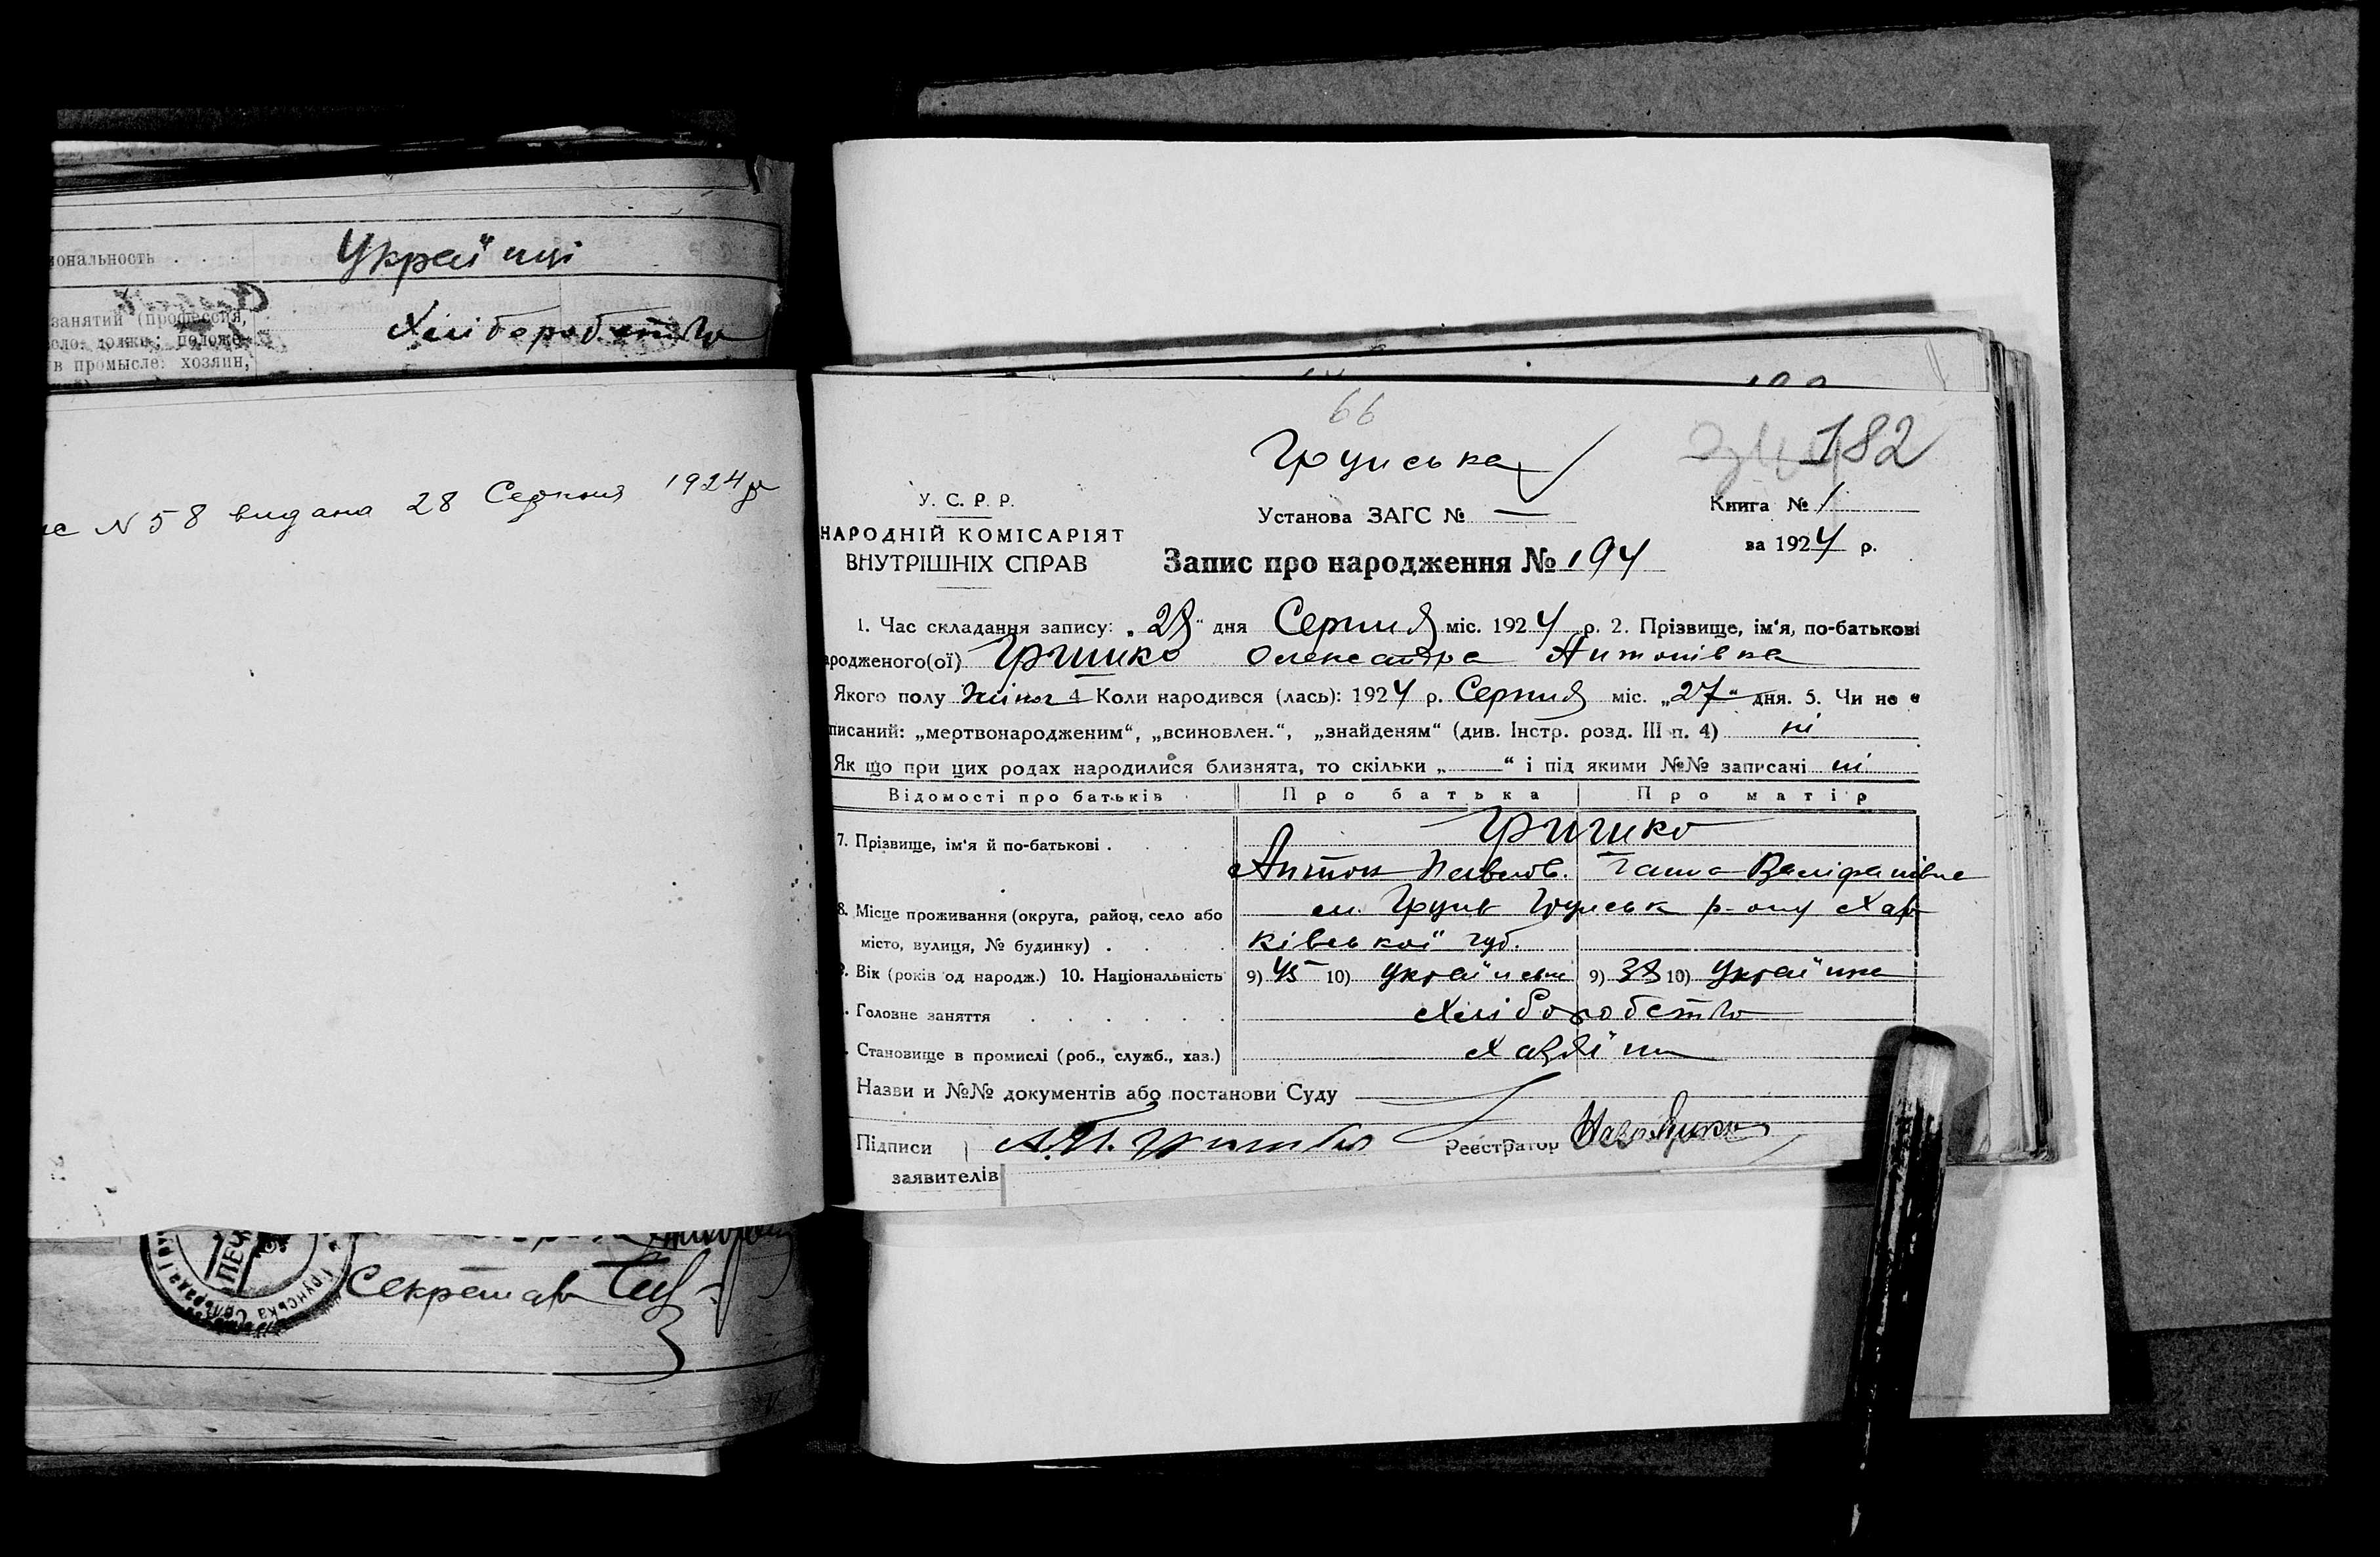 иональность . . .
Украй"нці
занятий (профессия,
хліборобство
в промысле: хозяин,
№ 58 видана 28 Серпня 1924 р
Грунська Сільрада
Секретар
66
182
Грунська
У. С. Р. Р.
Установа ЗАГС № —
Книга № 1
НАРОДНІЙ КОМІСАРІЯТ
ВНУТРІШНІХ СПРАВ
Запис про народження № 194
за 1924 р.
1. Час складання запису: „28" дня Серпня міс. 1924 р. 2. Прізвище, ім'я, по-батькові
ародженого(ої) Гришко Олександра Антонівна
Якого полу жіноч 4 Коли народився (лась): 1924 р. Серпня міс. „27" дня. 5. Чи не є
писаний: „мертвонародженим", „всиновлен.", „знайденям" (див. Інстр. розд. III п. 4) ні
Як що при цих родах народилися близнята, то скільки „—" і під якими №№ записані ні
Відомості про батьків Про батька Про матір
7. Прізвище, ім'я й по-батькові . . . .
Гришко
Антон Павлов. Ганна
8. Місце проживання (округа, район, село або
місто, вулиця, № будинку) . . . .
сл. Грунь Грунськ р-ону Хар
ківської губ.
9. Вік (років од народж.) 10. Національність 9) 45 10) 9) 38 10) Україинка
. Головне заняття . . . . . . Хліборобство
. Становище в промислі (роб., служб., хаз.) Хазяїн
Назви и №№ документів або постанови Суду —
Підписи А.П. Гришко Реєстратор
заявителів